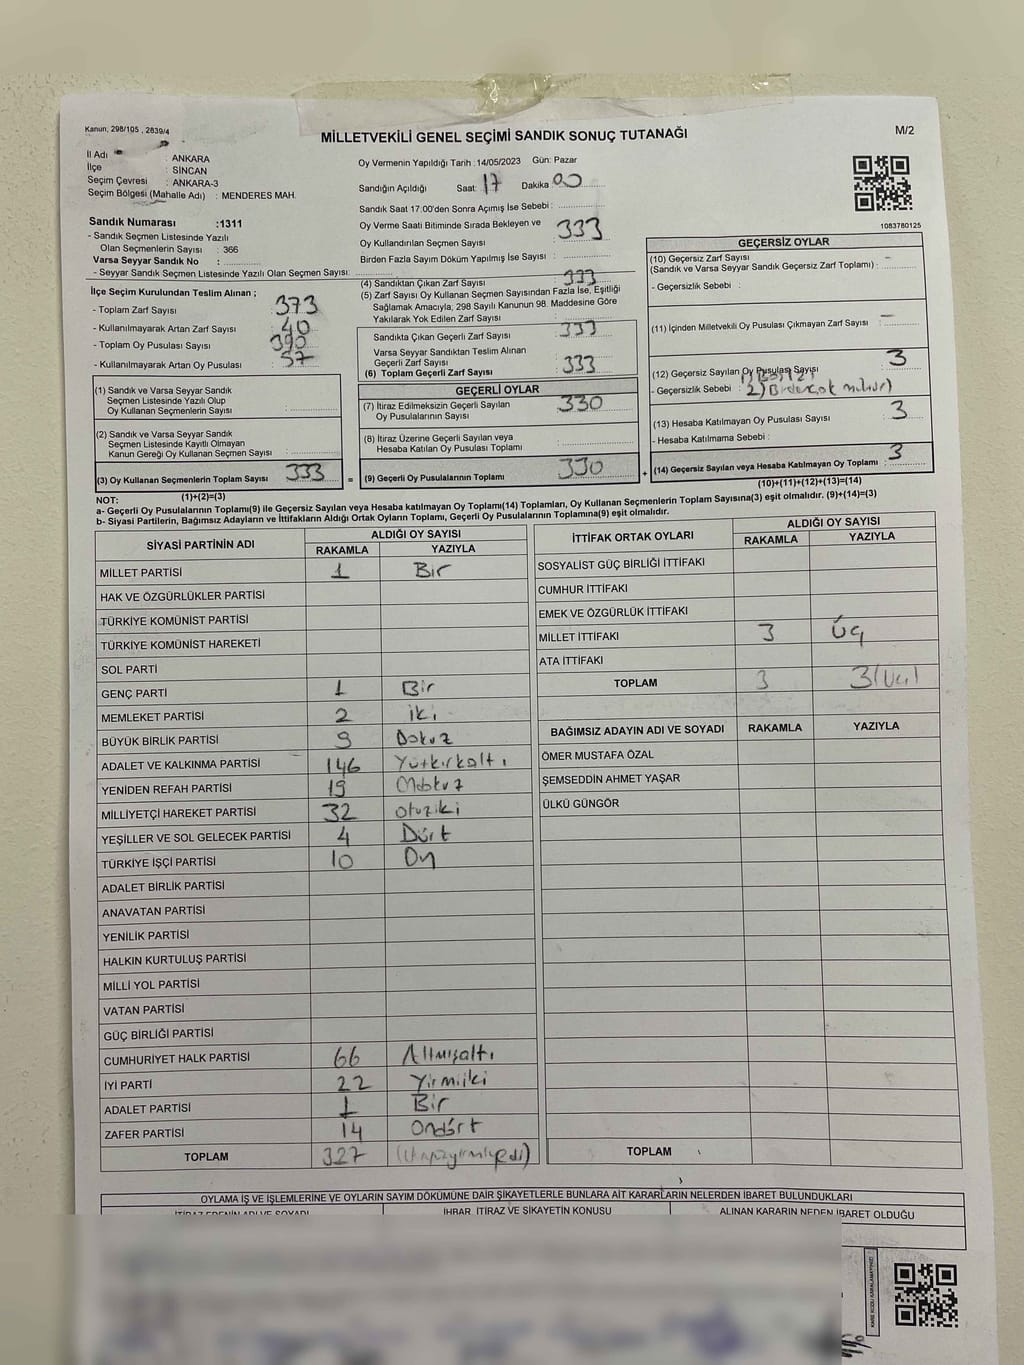 Kanun, 298/105 , 2839/4
MİLLETVEKİLİ GENEL SEÇİMİ SANDIK SONUÇ TUTANAĞI
M/2
İl Adı : ANKARA
İlçe : SİNCAN
Seçim Çevresi : ANKARA-3
Seçim Bölgesi (Mahalle Adı) : MENDERES MAH.
Sandık Numarası :1311
- Sandık Seçmen Listesinde Yazılı
Olan Seçmenlerin Sayısı : 366
Varsa Seyyar Sandık No :
- Seyyar Sandık Seçmen Listesinde Yazılı Olan Seçmen Sayısı:
İlçe Seçim Kurulundan Teslim Alınan ;
- Toplam Zarf Sayısı : 373
- Kullanılmayarak Artan Zarf Sayısı : 40
- Toplam Oy Pusulası Sayısı : 390
- Kullanılmayarak Artan Oy Pusulası : 57
(1) Sandık ve Varsa Seyyar Sandık
Seçmen Listesinde Yazılı Olup
Oy Kullanan Seçmenlerin Sayısı :
(2) Sandık ve Varsa Seyyar Sandık
Seçmen Listesinde Kayıtlı Olmayan
Kanun Gereği Oy Kullanan Seçmen Sayısı :
(3) Oy Kullanan Seçmenlerin Toplam Sayısı : 333
(1)+(2)=(3)
Oy Vermenin Yapıldığı Tarih : 14/05/2023 Gün: Pazar
Sandığın Açıldığı Saat: 17 Dakika 00
Sandık Saat 17:00'den Sonra Açımış İse Sebebi :
Oy Verme Saati Bitiminde Sırada Bekleyen ve
Oy Kullandırılan Seçmen Sayısı : 333
Birden Fazla Sayım Döküm Yapılmış İse Sayısı :
(4) Sandıktan Çıkan Zarf Sayısı : 333
(5) Zarf Sayısı Oy Kullanan Seçmen Sayısından Fazla İse, Eşitliği
Sağlamak Amacıyla; 298 Sayılı Kanunun 98. Maddesine Göre
Yakılarak Yok Edilen Zarf Sayısı :
Sandıkta Çıkan Geçerli Zarf Sayısı : 333
Varsa Seyyar Sandıktan Teslim Alınan
Geçerli Zarf Sayısı :
(6) Toplam Geçerli Zarf Sayısı : 333
GEÇERLİ OYLAR
(7) İtiraz Edilmeksizin Geçerli Sayılan
Oy Pusulalarının Sayısı : 330
(8) İtiraz Üzerine Geçerli Sayılan veya
Hesaba Katılan Oy Pusulası Toplamı :
= (9) Geçerli Oy Pusulalarının Toplamı : 330
1083780125
GEÇERSİZ OYLAR
(10) Geçersiz Zarf Sayısı
(Sandık ve Varsa Seyyar Sandık Geçersiz Zarf Toplamı) : -
- Geçersizlik Sebebi :
(11) İçinden Milletvekili Oy Pusulası Çıkmayan Zarf Sayısı : -
(12) Geçersiz Sayılan Oy Pusulası Sayısı : 3
- Geçersizlik Sebebi :
(13) Hesaba Katılmayan Oy Pusulası Sayısı : 3
- Hesaba Katılmama Sebebi :
+ (14) Geçersiz Sayılan veya Hesaba Katılmayan Oy Toplamı : 3
(10)+(11)+(12)+(13)=(14)
NOT:
a- Geçerli Oy Pusulalarının Toplamı(9) ile Geçersiz Sayılan veya Hesaba katılmayan Oy Toplamı(14) Toplamları, Oy Kullanan Seçmenlerin Toplam Sayısına(3) eşit olmalıdır. (9)+(14)=(3)
b- Siyasi Partilerin, Bağımsız Adayların ve İttifakların Aldığı Ortak Oyların Toplamı, Geçerli Oy Pusulalarının Toplamına(9) eşit olmalıdır.
SİYASİ PARTİNİN ADI ALDIĞI OY SAYISI
RAKAMLA YAZIYLA
MİLLET PARTİSİ 1 Bir
HAK VE ÖZGÜRLÜKLER PARTİSİ
TÜRKİYE KOMÜNİST PARTİSİ
TÜRKİYE KOMÜNİST HAREKETİ
SOL PARTİ
GENÇ PARTİ 1 Bir
MEMLEKET PARTİSİ 2 iki
BÜYÜK BİRLİK PARTİSİ 9 Dokuz
ADALET VE KALKINMA PARTİSİ 146 Yüzkırkaltı
YENİDEN REFAH PARTİSİ 19 Ondokuz
MİLLİYETÇİ HAREKET PARTİSİ 32 otuziki
YEŞİLLER VE SOL GELECEK PARTİSİ 4 Dört
TÜRKİYE İŞÇİ PARTİSİ 10 On
ADALET BİRLİK PARTİSİ
ANAVATAN PARTİSİ
YENİLİK PARTİSİ
HALKIN KURTULUŞ PARTİSİ
MİLLİ YOL PARTİSİ
VATAN PARTİSİ
GÜÇ BİRLİĞİ PARTİSİ
CUMHURİYET HALK PARTİSİ 66 Altmışaltı
İYİ PARTİ 22 Yirmiiki
ADALET PARTİSİ 1 Bir
ZAFER PARTİSİ 14 Ondört
TOPLAM 327
İTTİFAK ORTAK OYLARI ALDIĞI OY SAYISI
RAKAMLA YAZIYLA
SOSYALİST GÜÇ BİRLİĞİ İTTİFAKI
CUMHUR İTTİFAKI
EMEK VE ÖZGÜRLÜK İTTİFAKI
MİLLET İTTİFAKI 3 Üç
ATA İTTİFAKI
TOPLAM 3 3(Üç)
BAĞIMSIZ ADAYIN ADI VE SOYADI RAKAMLA YAZIYLA
ÖMER MUSTAFA ÖZAL
ŞEMSEDDİN AHMET YAŞAR
ÜLKÜ GÜNGÖR
TOPLAM
OYLAMA İŞ VE İŞLEMLERİNE VE OYLARIN SAYIM DÖKÜMÜNE DAİR ŞİKAYETLERLE BUNLARA AİT KARARLARIN NELERDEN İBARET BULUNDUKLARI
İTİRAZ EDENİN ADI VE SOYADI İHBAR, İTİRAZ VE ŞİKAYETİN KONUSU ALINAN KARARIN NEDEN İBARET OLDUĞU
KARE KODU KARALAMAYINIZ!